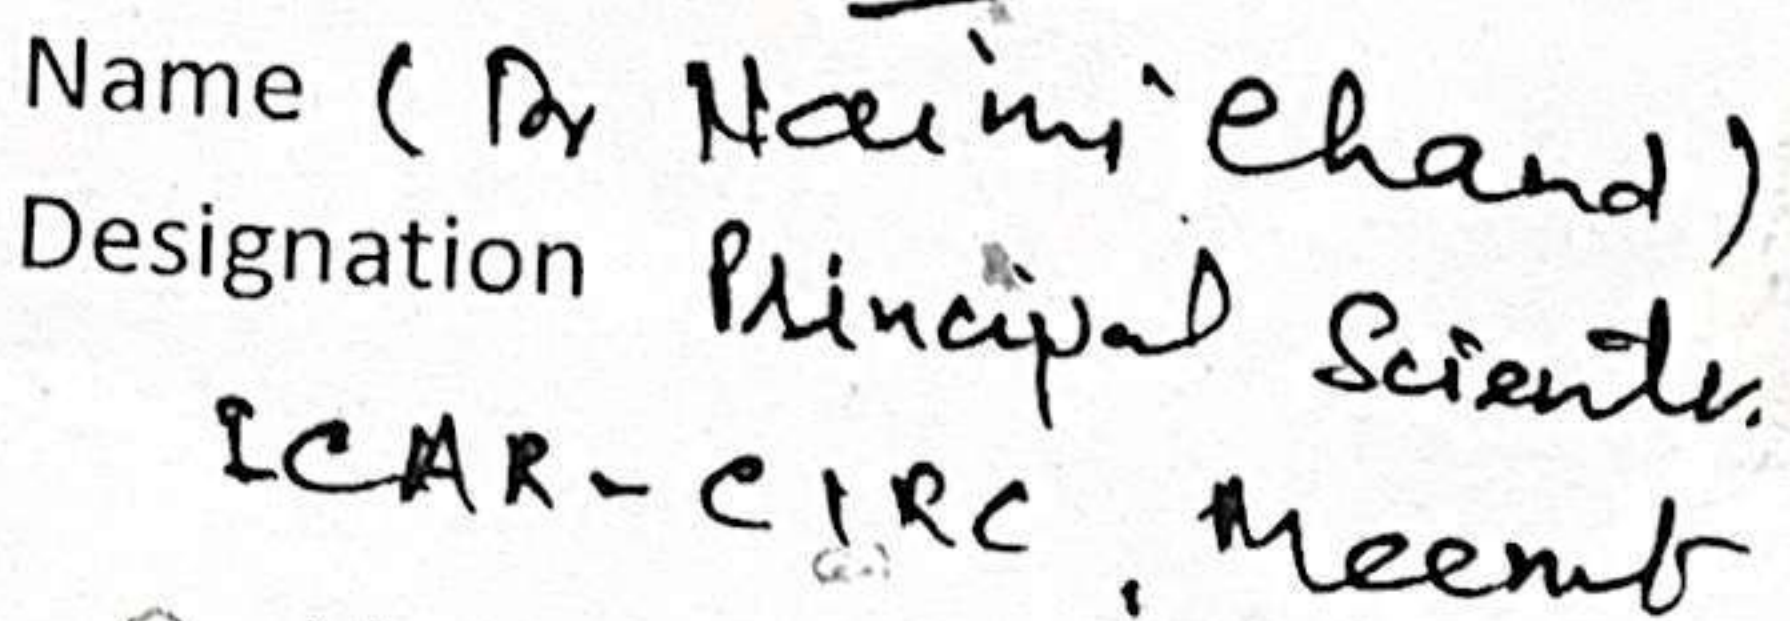 Name (Dr Naimi Chand)
Designation Principal Scientis.
ICAR-CIRC, Meerut